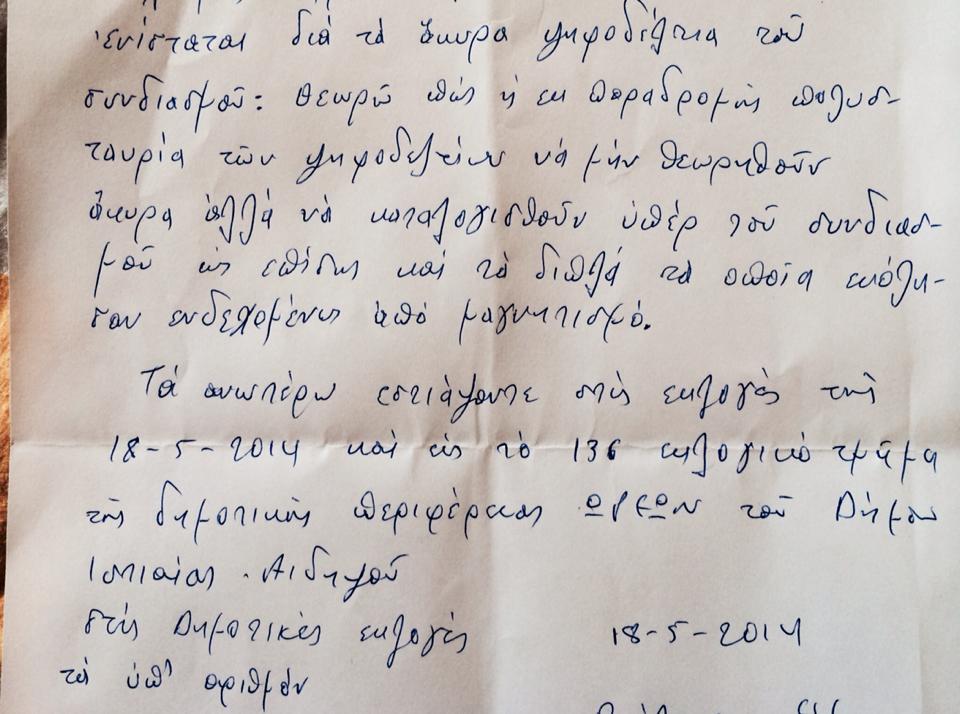 ἐνίσταται διά τά ἄκυρα ψηφοδέλτια τοῦ
συνδιασμοῦ: θεωρῶ πώς ἡ εκ παραδρομής πολυσ-
ταυρία τῶν ψηφοδελτίων νά μήν θεωρηθοῦν
ἄκυρα ἀλλά νά καταλογισθοῦν ὑπέρ τοῦ συνδιασ-
μοῦ ὡς επίσης καί τά διπλά τά οποία εκόλη-
σαν ενδεχομένως ἀπό μαγνητισμό.
Τά ανωτέρω στίς εκλογές τῆς
18-5-2014 καί εἰς τό 136 εκλογικό τμῆμα
τῆς δημοτικῆς περιφέρειας ΩΡΕΩΝ τοῦ Δήμου
Ιστιαίας - Αιδηψοῦ
στίς Δημοτικές εκλογές 18-5-2014
τά ὑπ' αριθμόν